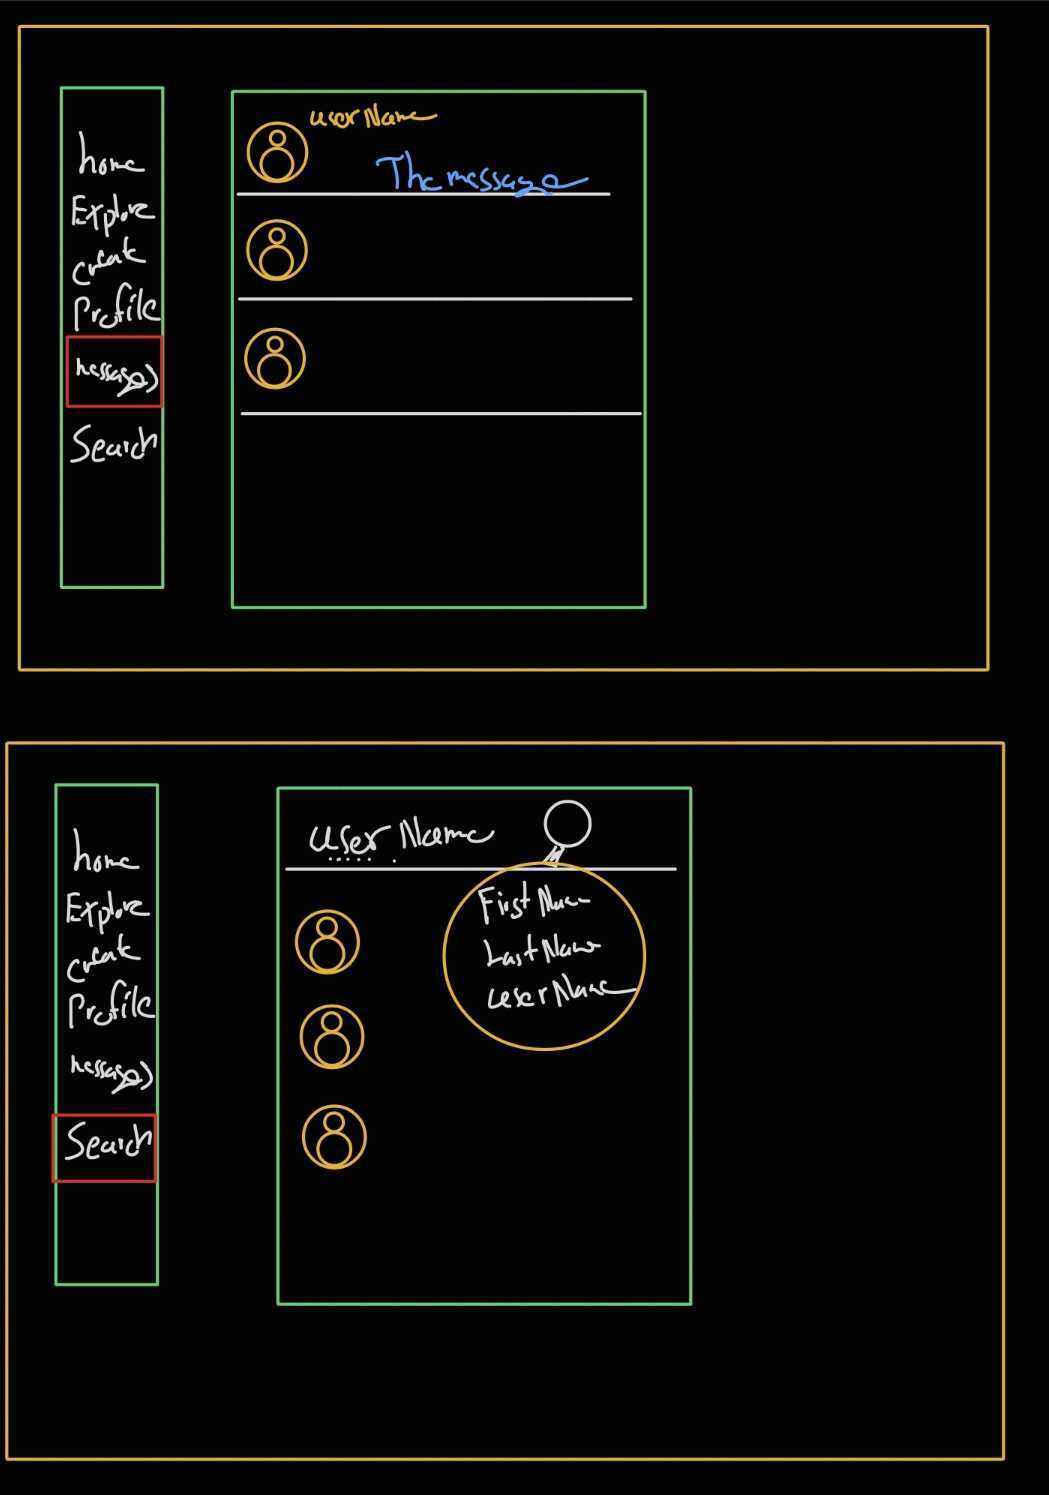 home
Explore
create
Profile
messages
Search
userName
The message
home
Explore
create
Profile
messages
Search
userName
First Name
Last Name
userName